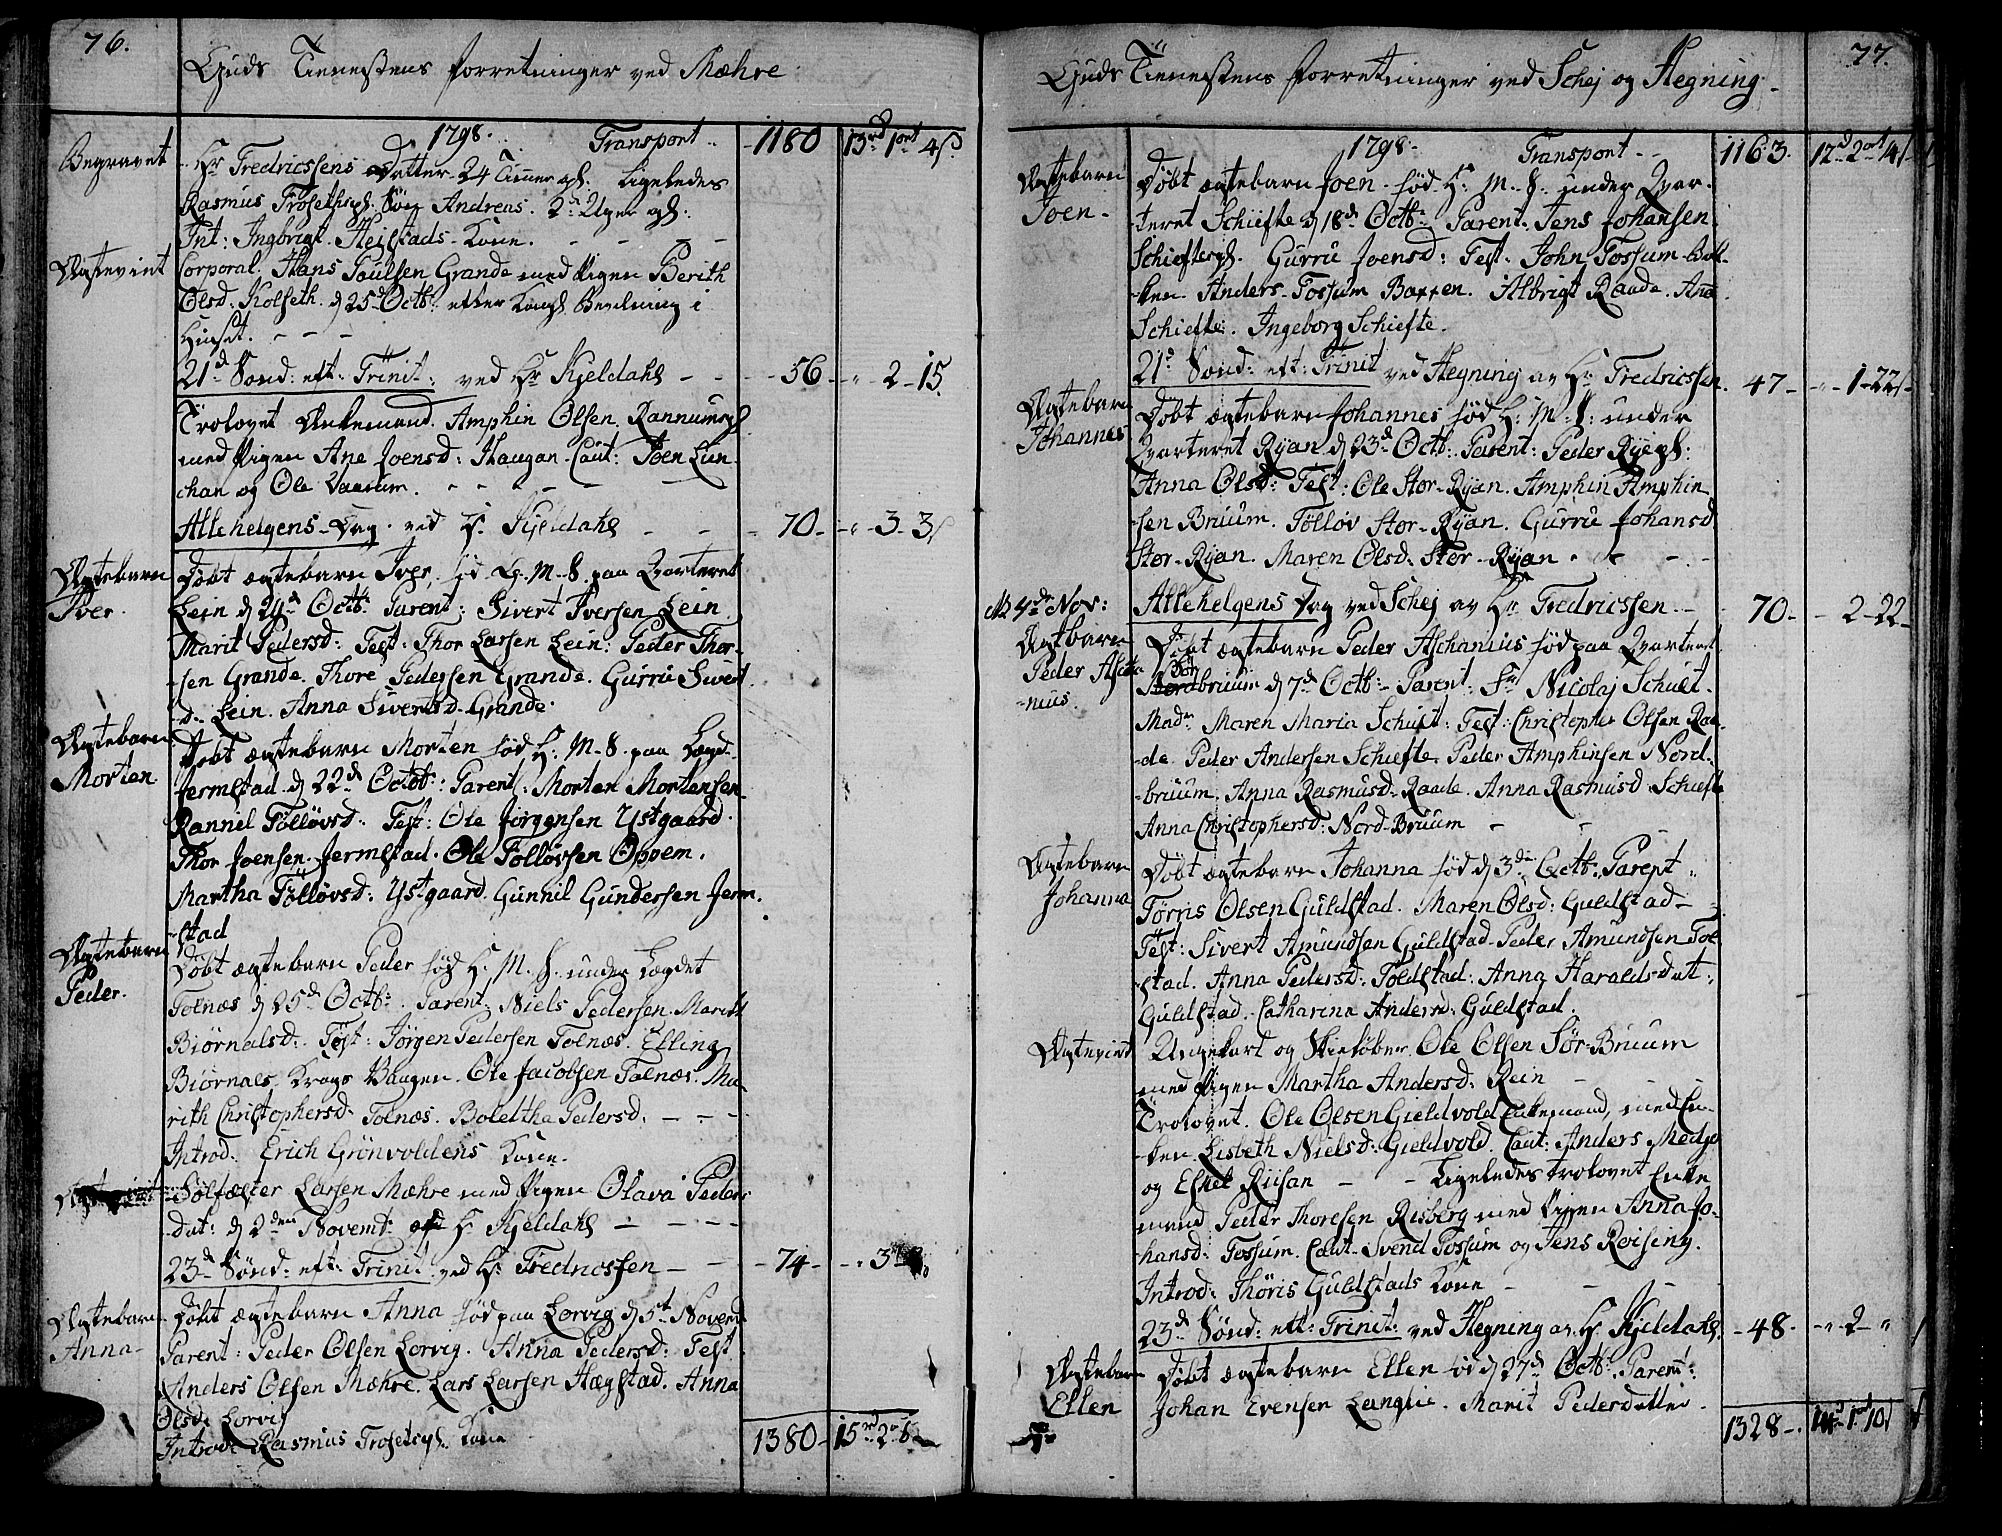 76.
Guds Tienestens forretninger ved Mæhre
1798. Transport 1180 13rd 1ort 4s
Begravet
Hr Fredricssens Datter 24 Timer gl: Ligeledes
Rasmus Trosethspl. Søn Andreas. 2 Uger gl:
Int: Ingbrigt Heistads Kone.
Ægteviet
Corporal Hans Poulsen Grande med Pigen Berith
Olsd: Kolseth d 25d Octb: efter Kongl Bevilning i
Huuset.
21d Sønd: eft: Trinit: ved Hr Kjeldahl 56 2 15
Trolovet Enkemand Amphin Olsen Rannumspl
med Pigen Ane Joensd: Haugan. Caut: Joen Lun-
chan og Ole Vaarum.
Allehelgens Dag ved Hr Kjeldahl 70 3 3s
Ægtebarn
Iver.
Døbt ægtebarn Iver, fød H. M. S. paa Qvarteret
Lein d 24d Octb: Parent: Sivert Iversen Lein
Marit Pedersd: Test: Thor Larsen Lein: Peder Thor-
sen Grande. Thore Pedersen Grande. Gurru Sivert
d. Lein. Anna Sivertsd. Grande.
Ægtebarn
Morten
Døbt ægtebarn Morten fød H: M. S. paa Lægd
Jermstad d 22d Octob: Parent: Morten Mortensen
Rannil Tølløvsd: Test: Ole Jørgensen Ystgaard.
Thor Joensen Jermstad. Ole Tølløvsen Oppem.
Martha Tølløvsd: Ystgaard. Gunnil Gundersen Jerm
stad
Ægtebarn
Peder.
Døbt ægtebarn Peder fød H: M. S. under Lægdet
Tolnæs d 25d Octb: Parent: Niels Pedersen. Marith
Biørnalsd: Test: Jørgen Pedersen Tolnæs. Elling
Biørnaes Krogs Vaagen. Ole Jacobsen Tolnæs. Ma-
rith Christophersd. Tolnæs. Bolettha Pedersd.
Introd: Erich Grønvoldens Kone.
Sølfæster Larsen Mæhre med Pigen Olava Peders
dat: d 2den Novemb: af Hr Kjeldahl
23d Sønd: eft: Trinit: ved Hr Fredricssen 74 3
Ægtebarn
Anna
Døbt ægtebarn Anna fød paa Lorvig d 5t Novemb
Parent: Peder Olsen Lorvig. Anna Pedersd: Test
Anders Olsen Mæhre. Lars Larsen Hægstad. Anna
Olsd: Lorvig
Introd: Rasmus Trosethspl. Kone
1380 15rd 2 6
77.
Guds Tienestens forretninger ved Schej og Hegning.
1798. Transport 1163. 12d 2ort 4s
Ægtebarn
Joen
Døbt ægtebarn Joen fød H: M. S. under Qvar-
teret Schiefte d 18d Octb: Parent. Jens Johansen
Schieftespl. Gurru Joensd: Test. John Fossum Bak-
ken. Anders Fossum Bakken. Albrigt Raade. Ane
Schiefte. Ingeborg Schiefte.
21d Sønd: eft: Trinit ved Hegning av Hr Fredricssen 47 1 22s
Ægtebarn
Johannes
Døbt ægtebarn Johannes fød H: M. S: under
Qvarteret Ryan d 23d Octb: Parent: Peder Ryespl:
Anna Olsd: Test: Ole Stor-Ryan. Amphin Amphin-
sen Bruum. Tølløv Stor-Ryan. Gurru Johansd
Stor-Ryan. Maren Olsd: Stor-Ryan
Allehelgens Dag ved Schej av Hr Fredricssen 70 2 22
NB. 4de Nov:
Ægtbarn
Peder Ascha-
nius
Døbt ægtebarn Peder Aschanius fød paa Qvarteret
Nordbruum d 7d Octb: Parent: Sr Nicolaj Schult.
Madr Maren Maria Schult: Test: Christopher Olsen Raa-
de. Peder Andersen Schiefte. Peder Amphinsen Nord
bruum. Anna Rasmusd. Raade. Anna Rasmusd. Schiefte
Anna Christophersd: Nord-Bruum
Ægtebarn
Johanna
Døbt ægtebarn Johanna fød d 3die Octb: Parent
Tørris Olsen Guldstad. Maren Olsd: Guldstad
Test: Sivert Amundsen Guldstad. Peder Amundsen Tol
stad. Anna Pedersd: Toldstad. Anna Haraldsdat:
Guldstad. Catharina Andersd: Guldstad.
Ægteviet
Ungekarl og Skieløber Ole Olsen Sør-Bruum
med Pigen Martha Andersd: Rein
Trolovet. Ole Olsen Gieldvold Enkemand, med En-
ken Lisbeth Nielsd: Gieldvold. Caut: Anders Medjo
og Eskel Riisan Ligeledes trolovet Enke
mand Peder Thoresen Risberg med Pigen Anna Jo-
hansd: Fossum. Caut. Svend Fossum og Jens Reising.
Introd: Thøris Guldstads Kone
23d Sønd: eft: Trinit: ved Hegning av Hr Kjeldahl. 48 2
Ægtebarn
Ellen
Døbt ægtebarn Ellen fød d 27d Octb: Parent:
Johan Evensen Langlie. Marit Pedersdatter
1328 14d 1ort 10s